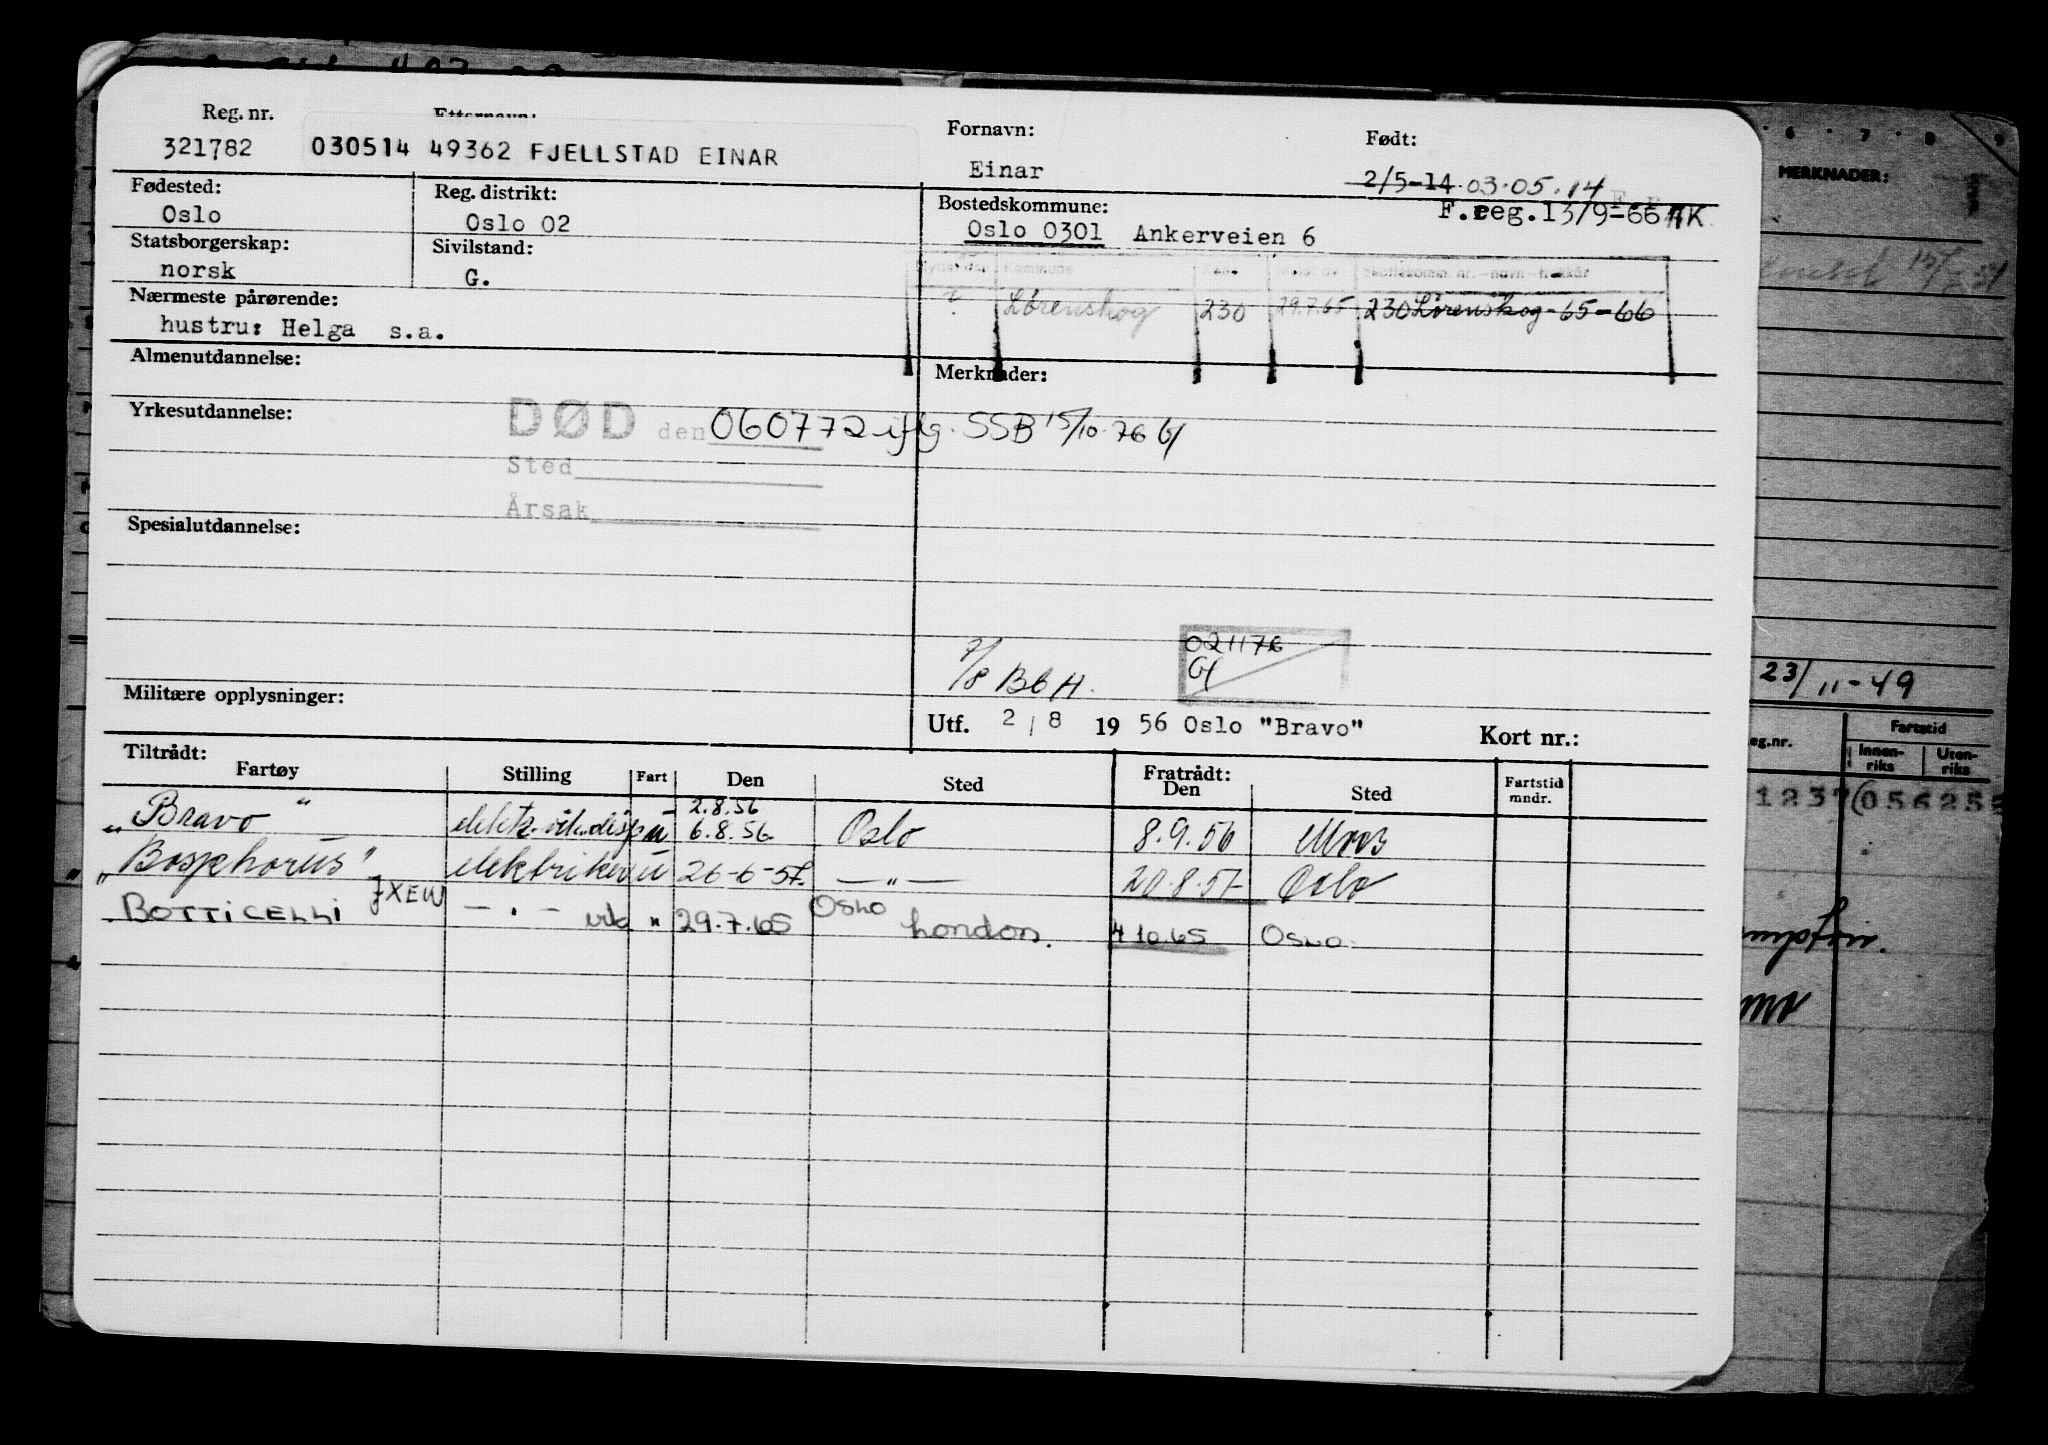 Reg. nr. Etternavn: Fornavn: Født:
321782 030514 49362 FJELLSTAD EINAR Einar 2/5-14 03.05.14
Fødested: Reg. distrikt: Bostedskommune: F.reg.13/9-66 AK
Oslo Oslo 02 Oslo 0301 Ankerveien 6
Statsborgerskap: Sivilstand:
norsk G.
Nærmeste pårørende: ? Lørenskog 230 29.7.65 230 Lørenskog-65-66
hustru: Helga s.a.
Almenutdannelse: Merknader:
Yrkesutdannelse: DØD den 060772 iflg. SSB 15/10-76
Sted
Årsak
Spesialutdannelse:
021176
7/8 BbH.
Militære opplysninger:
Utf. 2/8 1956 Oslo "Bravo" Kort nr.:
Tiltrådt: Fratrådt:
Fartøy Stilling Fart Den Sted Den Sted Fartstid mndr.
2.8.56
"Bravo" u 6.8.56 Oslo 8.9.56 Moss
"Bosphorus" elektriker u 26-6-57. —"— 20.8.57 Oslo
BOTTICELLI JXEW — " — " 29.7.65 OSLO London. 4 10 65 OSLO.
MERKNADER:
23/11-49
eg.nr. Fartstid
Innenriks Utenriks